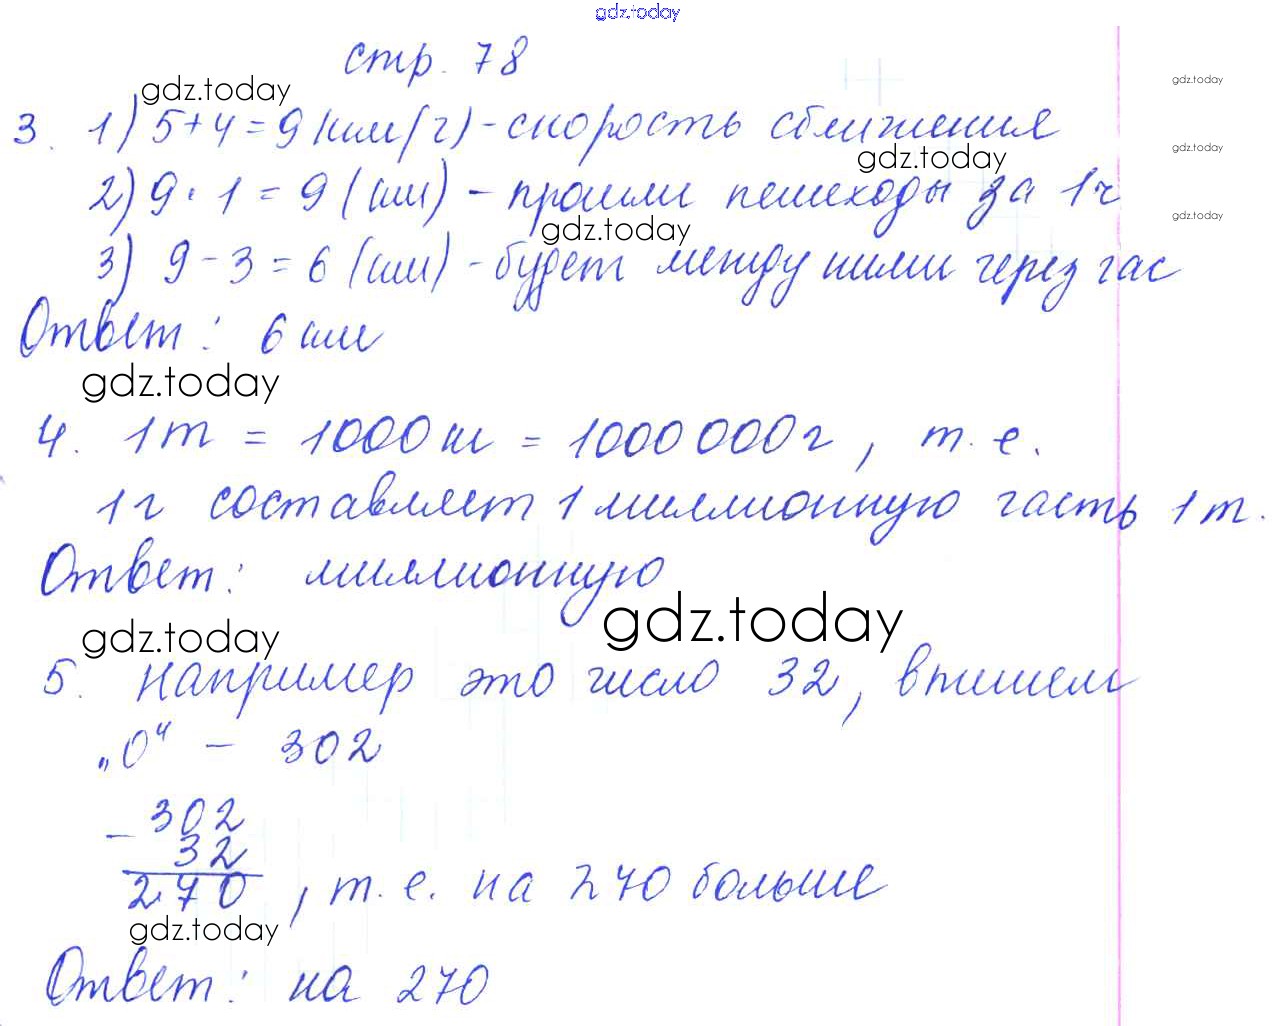 gdz.today
стр. 78
gdz.today
gdz.today
3. 1) 5+4=9 (км/ч) - скорость сближения
gdz.today
gdz.today
2) 9 · 1 = 9 (км) - прошли пешеходы за 1ч
gdz.today
gdz.today
3) 9 - 3 = 6 (км) - будет между ними через час
Ответ: 6 км
gdz.today
4. 1т = 1000кг = 1000 000г, т. е.
1г составляет 1 миллионную часть 1т.
Ответ: миллионную
gdz.today
gdz.today
5. Например это число 32, впишем
„0“ - 302
- 302
32
270, т. е. на 270 больше
gdz.today
Ответ: на 270